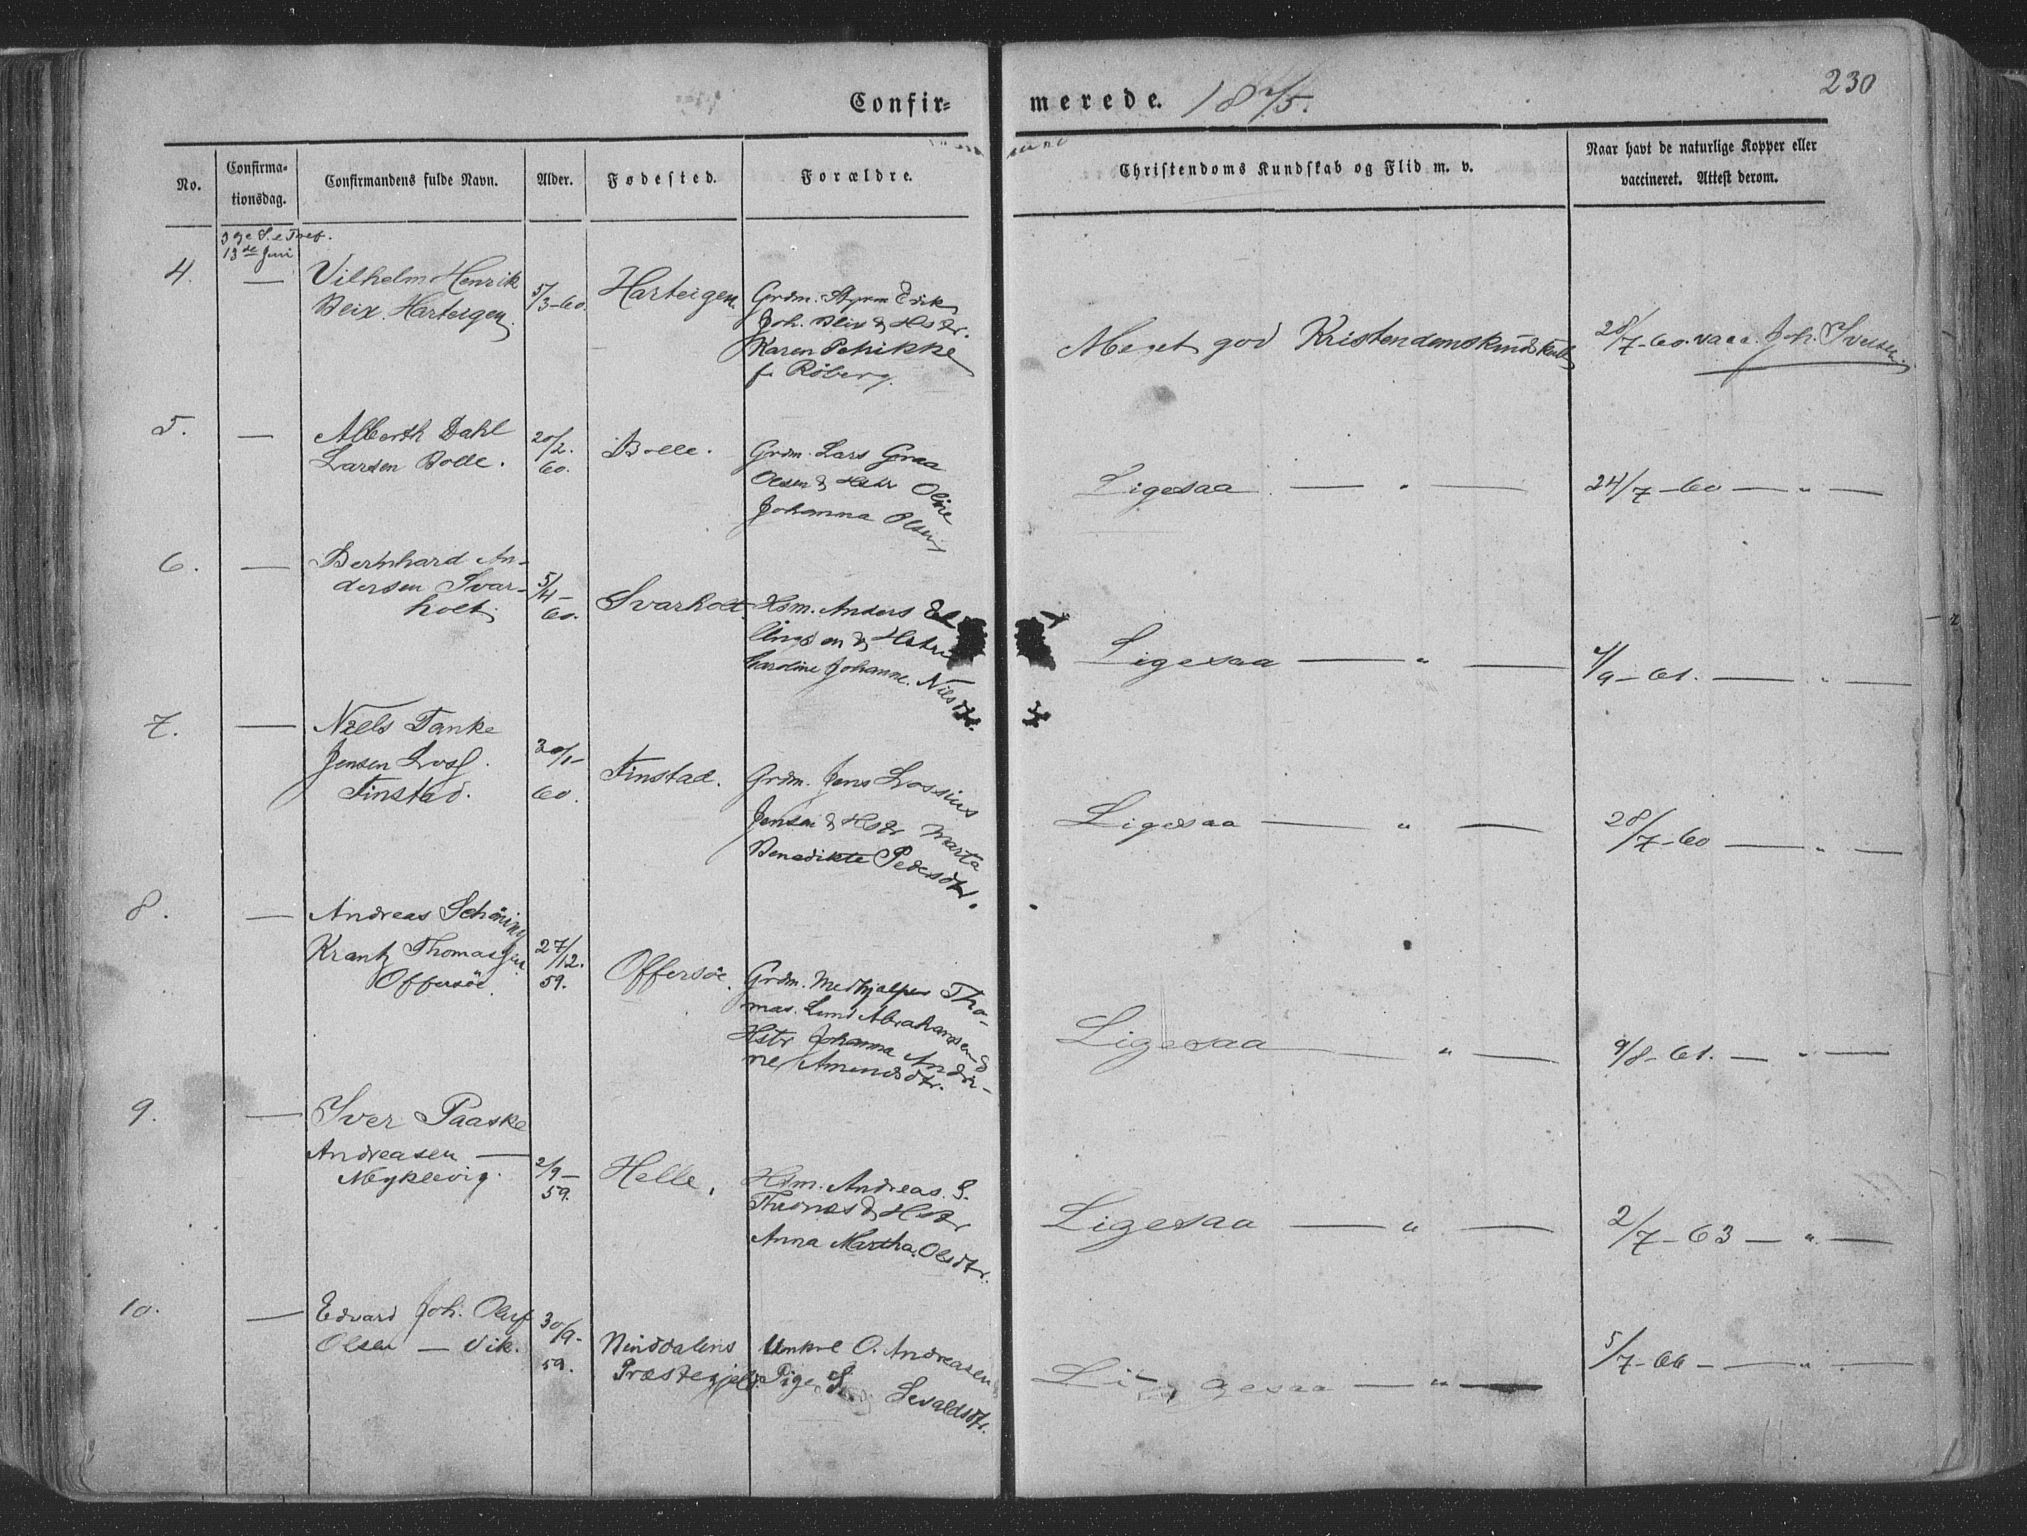 230
Confir= merede. 1875.
No.
Confirma-
tionsdag.
Confirmandens fulde Navn.
Alder.
Fødested.
Forældre.
Christendoms Kundskab og Flid m. v.
Naar havt de naturlige Kopper eller
vaccineret. Attest derom.
3ge S. e Tref.
13de Juni
4.
—
Vilhelm Henrik
Bleix Harteigen.
5/3-60.
Harteigen.
Grdm. Styrm Erik
Joh. Blix & Hstr.
Karen Petrikke
f. Röberg.
Meget god Kristendomskundskab
28/7-60. vacc. Joh. Iversen.
5.
—
Alberth Dahl
Larsen Bolle.
20/2.
60.
Bolle.
Grdm. Lars Graa
Olsen & Hstr Oline
Johanna Olsen
Ligesaa — " —
24/7-60 — " —
6.
—
Bernhard An-
dersen Svar-
holt.
5/4-
60.
Svarholt.
Hsm. Anders El-
lingsen & Hstr
Karoline Johanne. Nilsdtr.
Ligesaa — " —
1/9-61. — " —
7.
—
Niels Tanke
Jensen Loss.
Finstad.
30/1-
60.
Finstad.
Grdm. Jens Lossius
Jensen & Hstr Marta
Benedikte Pedersdtr.
Ligesaa — " —
28/7-60 — " —
8.
—
Andreas Schöning
Krantz Thomassen
Offersöe.
27/12.
59.
Offersöe.
Grdm. Medhjælper Tho-
mas. Lund Abrahamsen &
Hstr Johanna Andri-
ne Amundsdtr.
Ligesaa — " —
9/8-61. — " —
9.
—
Iver Paaske
Andreasen —
Myklevig.
2/9-
59.
Helle.
Hsm. Andreas. S.
Thomes & Hstr
Anna Martha. Olsdtr.
Ligesaa — " —
2/7-63 — " —
10.
—
Edvard Joh. Oluf
Olsen — Vik.
30/9-
59.
Ninddalens
Præstegjeld.
Unkrl O. Andreasen
Pige S. Sevaldsdtr.
Ligesaa — " —
5/7-66 — " —